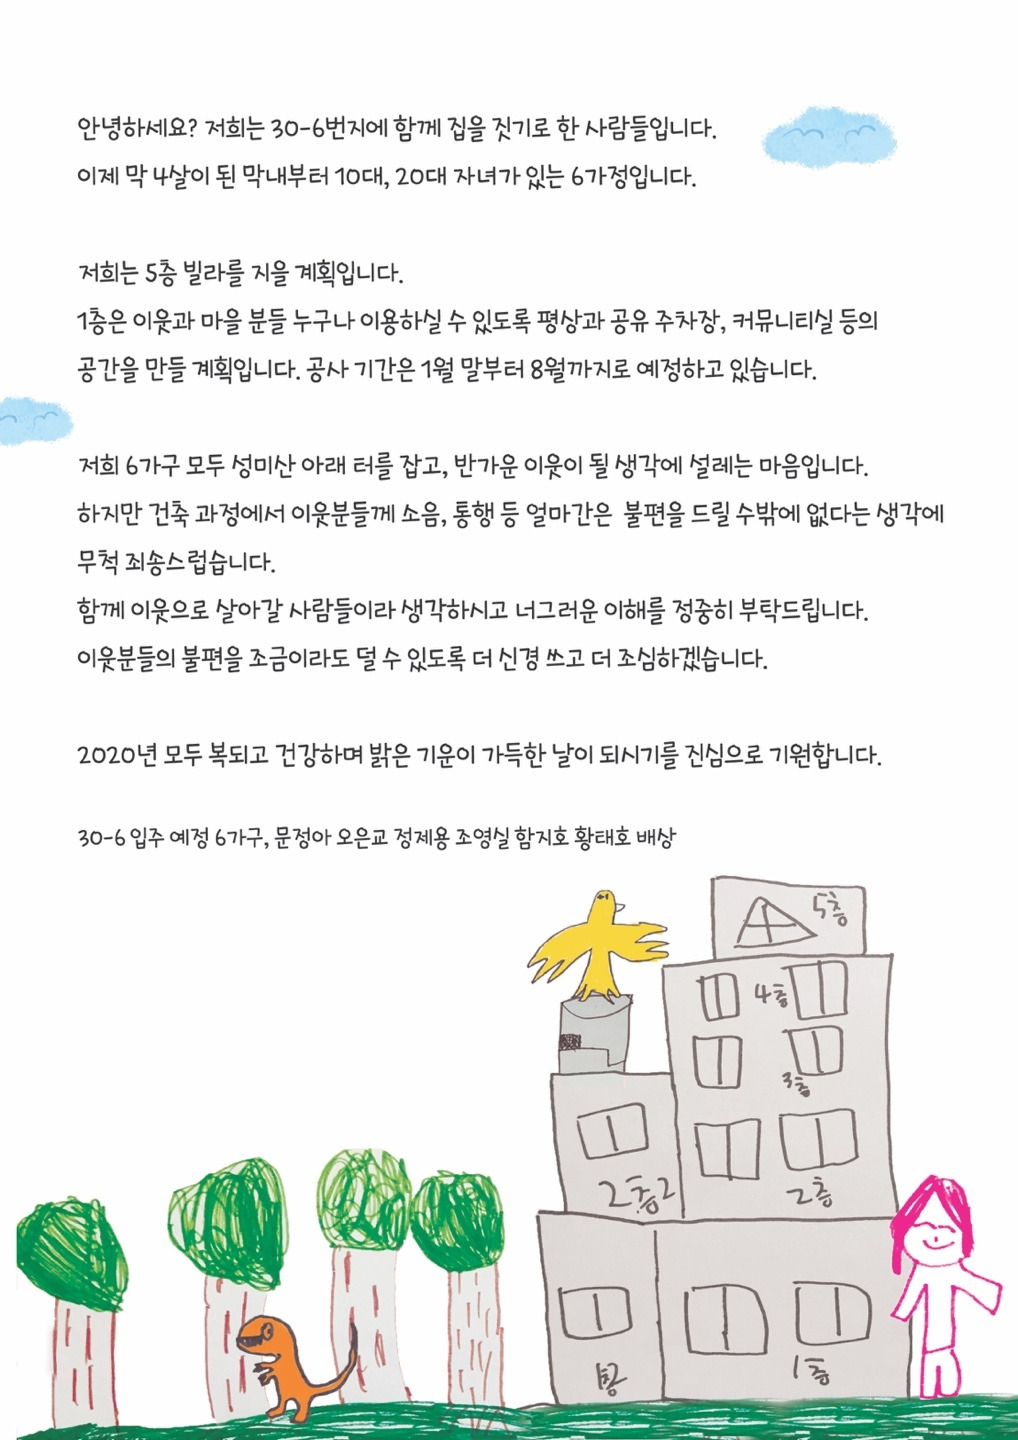 안녕하세요? 저희는 30-6번지에 함께 집을 짓기로 한 사람들입니다.
이제 막 4살이 된 막내부터 10대, 20대 자녀가 있는 6가정입니다.
저희는 5층 빌라를 지을 계획입니다.
1층은 이웃과 마을 분들 누구나 이용하실 수 있도록 평상과 공유 주차장, 커뮤니티실 등의
공간을 만들 계획입니다. 공사 기간은 1월 말부터 8월까지로 예정하고 있습니다.
저희 6가구 모두 성미산 아래 터를 잡고, 반가운 이웃이 될 생각에 설레는 마음입니다.
하지만 건축 과정에서 이웃분들께 소음, 통행 등 얼마간은 불편을 드릴 수밖에 없다는 생각에
무척 죄송스럽습니다.
함께 이웃으로 살아갈 사람들이라 생각하시고 너그러운 이해를 정중히 부탁드립니다.
이웃분들의 불편을 조금이라도 덜 수 있도록 더 신경 쓰고 더 조심하겠습니다.
2020년 모두 복되고 건강하며 밝은 기운이 가득한 날이 되시기를 진심으로 기원합니다.
30-6 입주 예정 6가구, 문정아 오은교 정제용 조영실 함지호 황태호 배상
5층
4층
3층
2층2
2층
1층